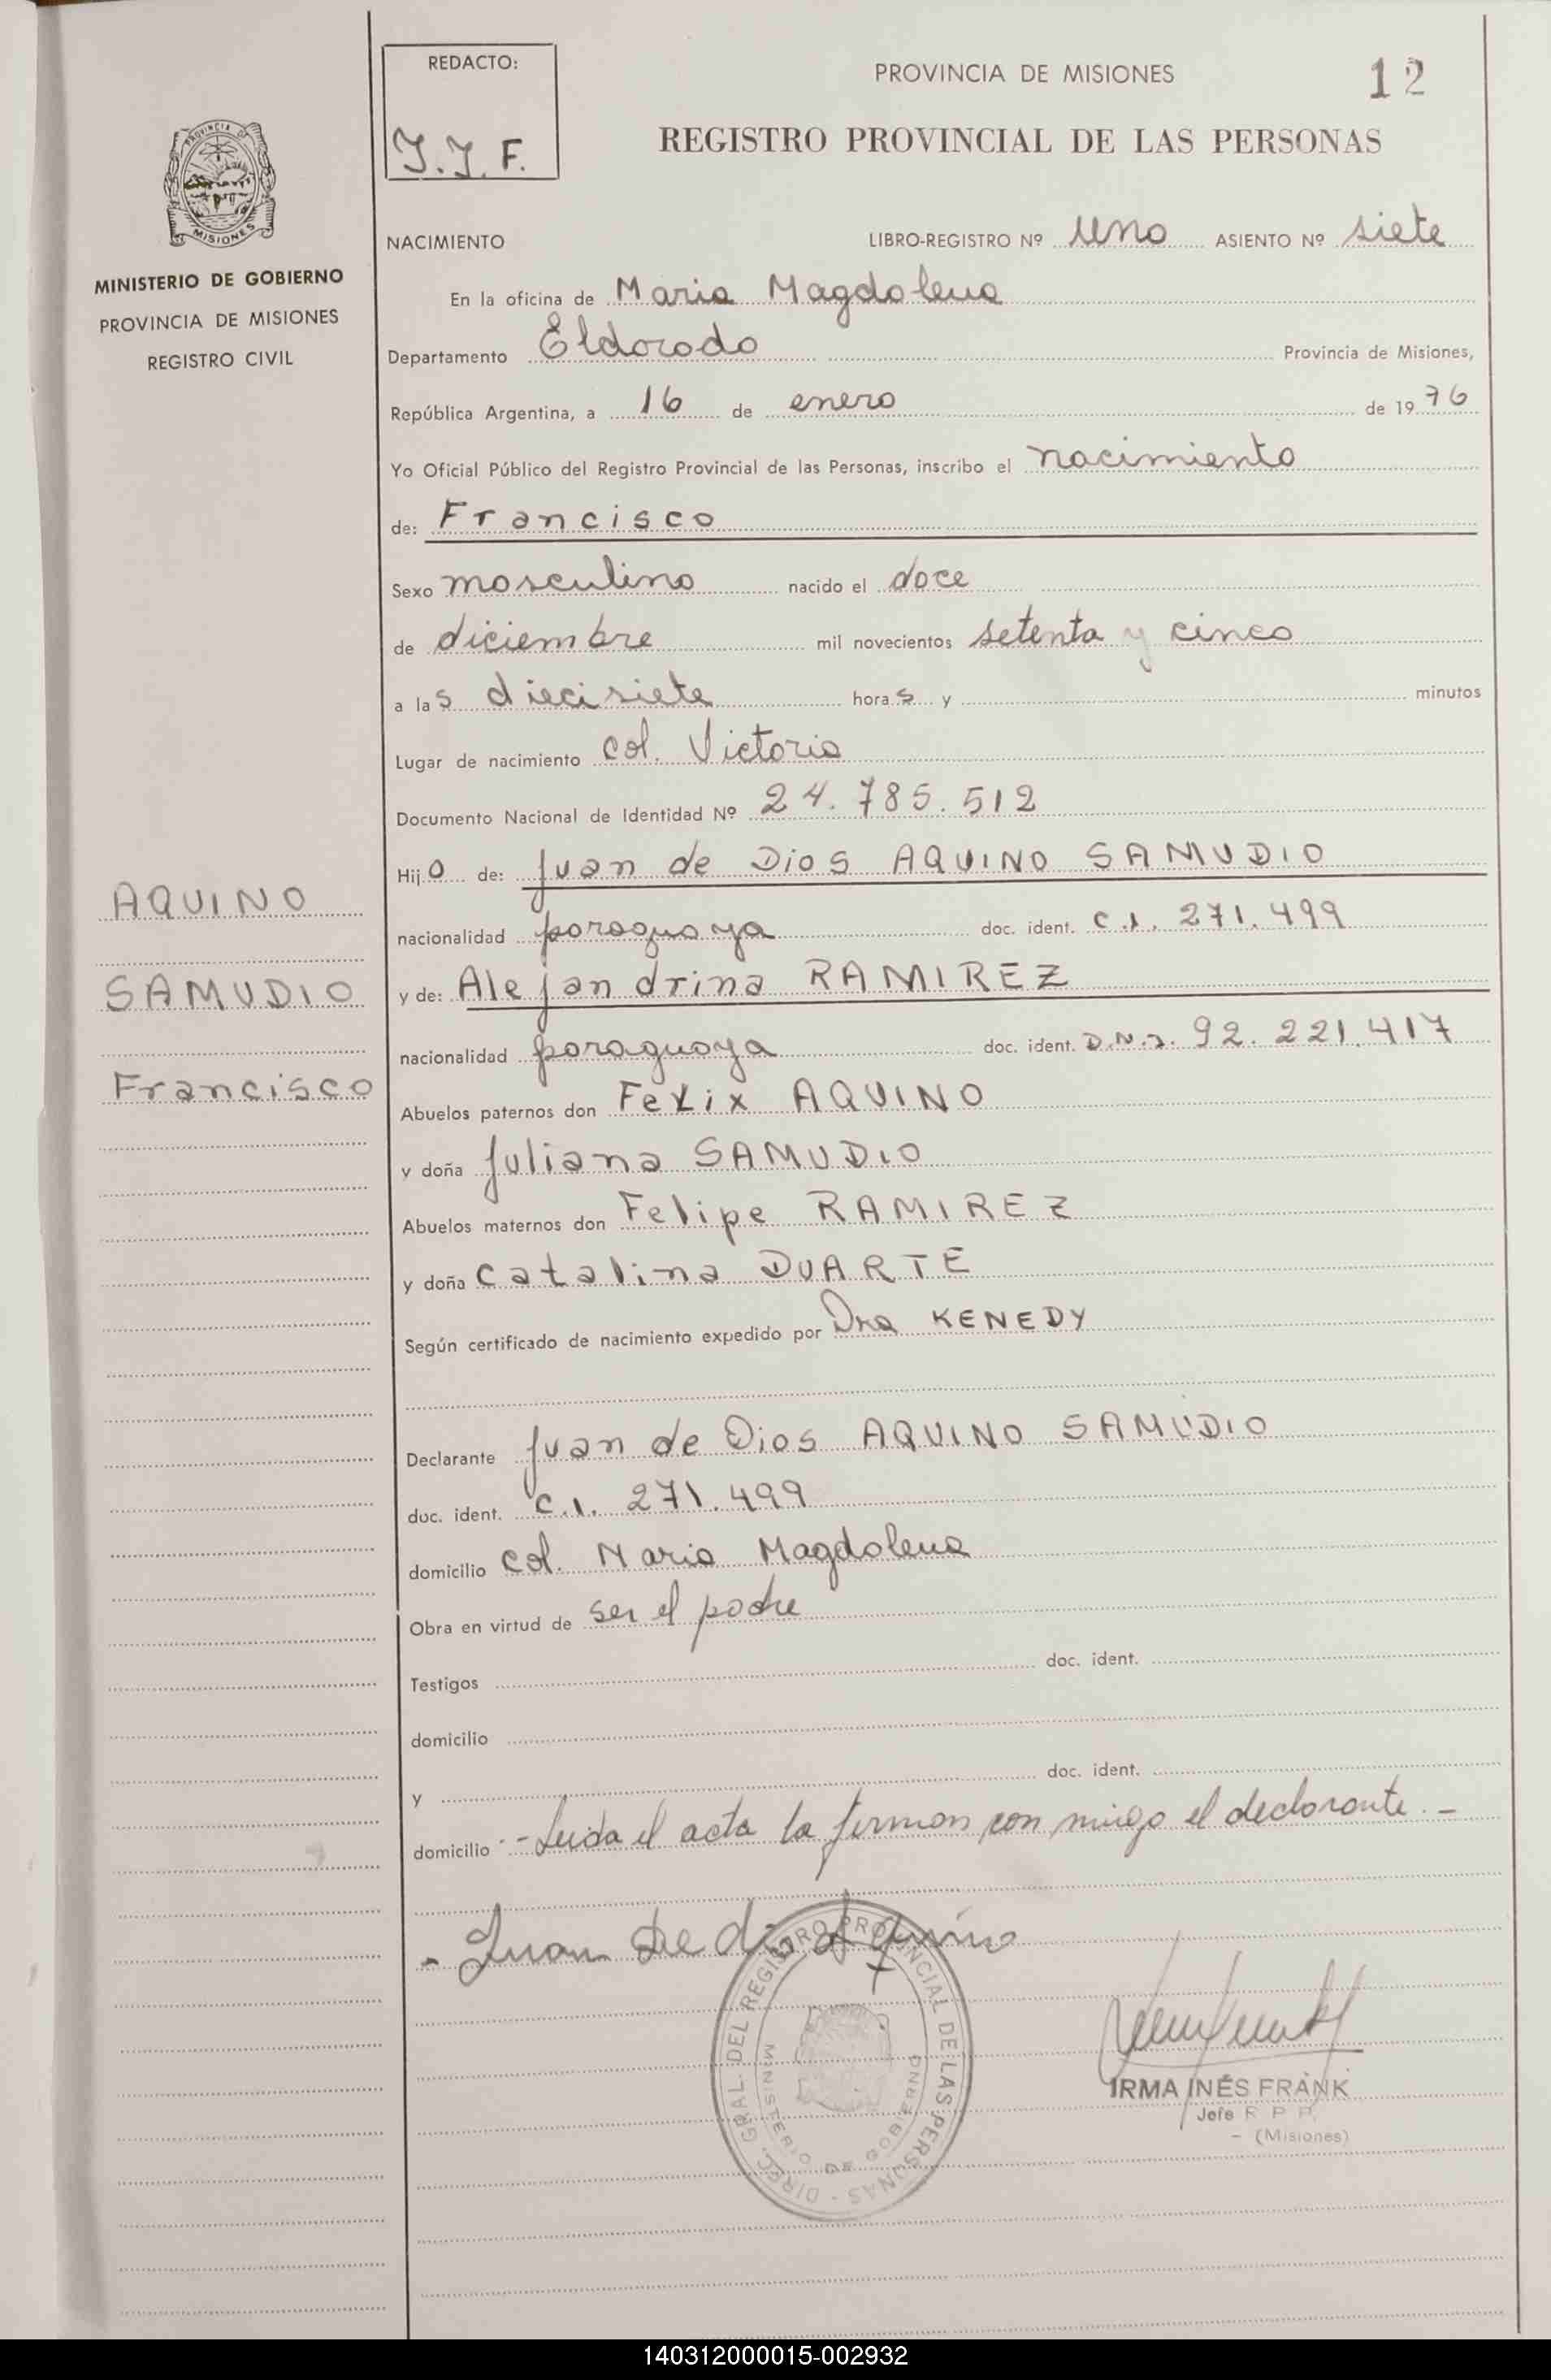 REDACTO:
I.I.F.
PROVINCIA DE MISIONES
12
REGISTRO PROVINCIAL DE LAS PERSONAS
PROVINCIA DE
MISIONES
MINISTERIO DE GOBIERNO
PROVINCIA DE MISIONES
REGISTRO CIVIL
AQUINO
SAMUDIO
Francisco
NACIMIENTO LIBRO-REGISTRO Nº uno ASIENTO Nº siete
En la oficina de Maria Magdalena
Departamento Eldorado Provincia de Misiones,
República Argentina, a 16 de enero de 1976
Yo Oficial Público del Registro Provincial de las Personas, inscribo el nacimiento
de: Francisco
Sexo masculino nacido el doce
de diciembre mil novecientos setenta y cinco
a las diecisiete horas y minutos
Lugar de nacimiento col. Victoria
Documento Nacional de Identidad Nº 24.785.512
Hijo de: Juan de Dios AQUINO SAMUDIO
nacionalidad paraguaya doc. ident. C.I. 271.499
y de: Alejandrina RAMIREZ
nacionalidad paraguaya doc. ident. D.N.I. 92.221.417
Abuelos paternos don Felix AQUINO
y doña Juliana SAMUDIO
Abuelos maternos don Felipe RAMIREZ
y doña Catalina DUARTE
Según certificado de nacimiento expedido por Dra KENEDY
Declarante Juan de Dios AQUINO SAMUDIO
doc. ident. C.I. 271.499
domicilio col. Maria Magdalena
Obra en virtud de ser el padre
Testigos doc. ident.
domicilio
y doc. ident.
domicilio -Leida el acta la firman con migo el declarante.-
- Juan de dios Aquino
DIREC. GRAL. DEL REGISTRO PROVINCIAL DE LAS PERSONAS -
MINISTERIO DE GOBIERNO
IRMA INÉS FRANK
Jefe R P P.
- (Misiones)
140312000015-002932